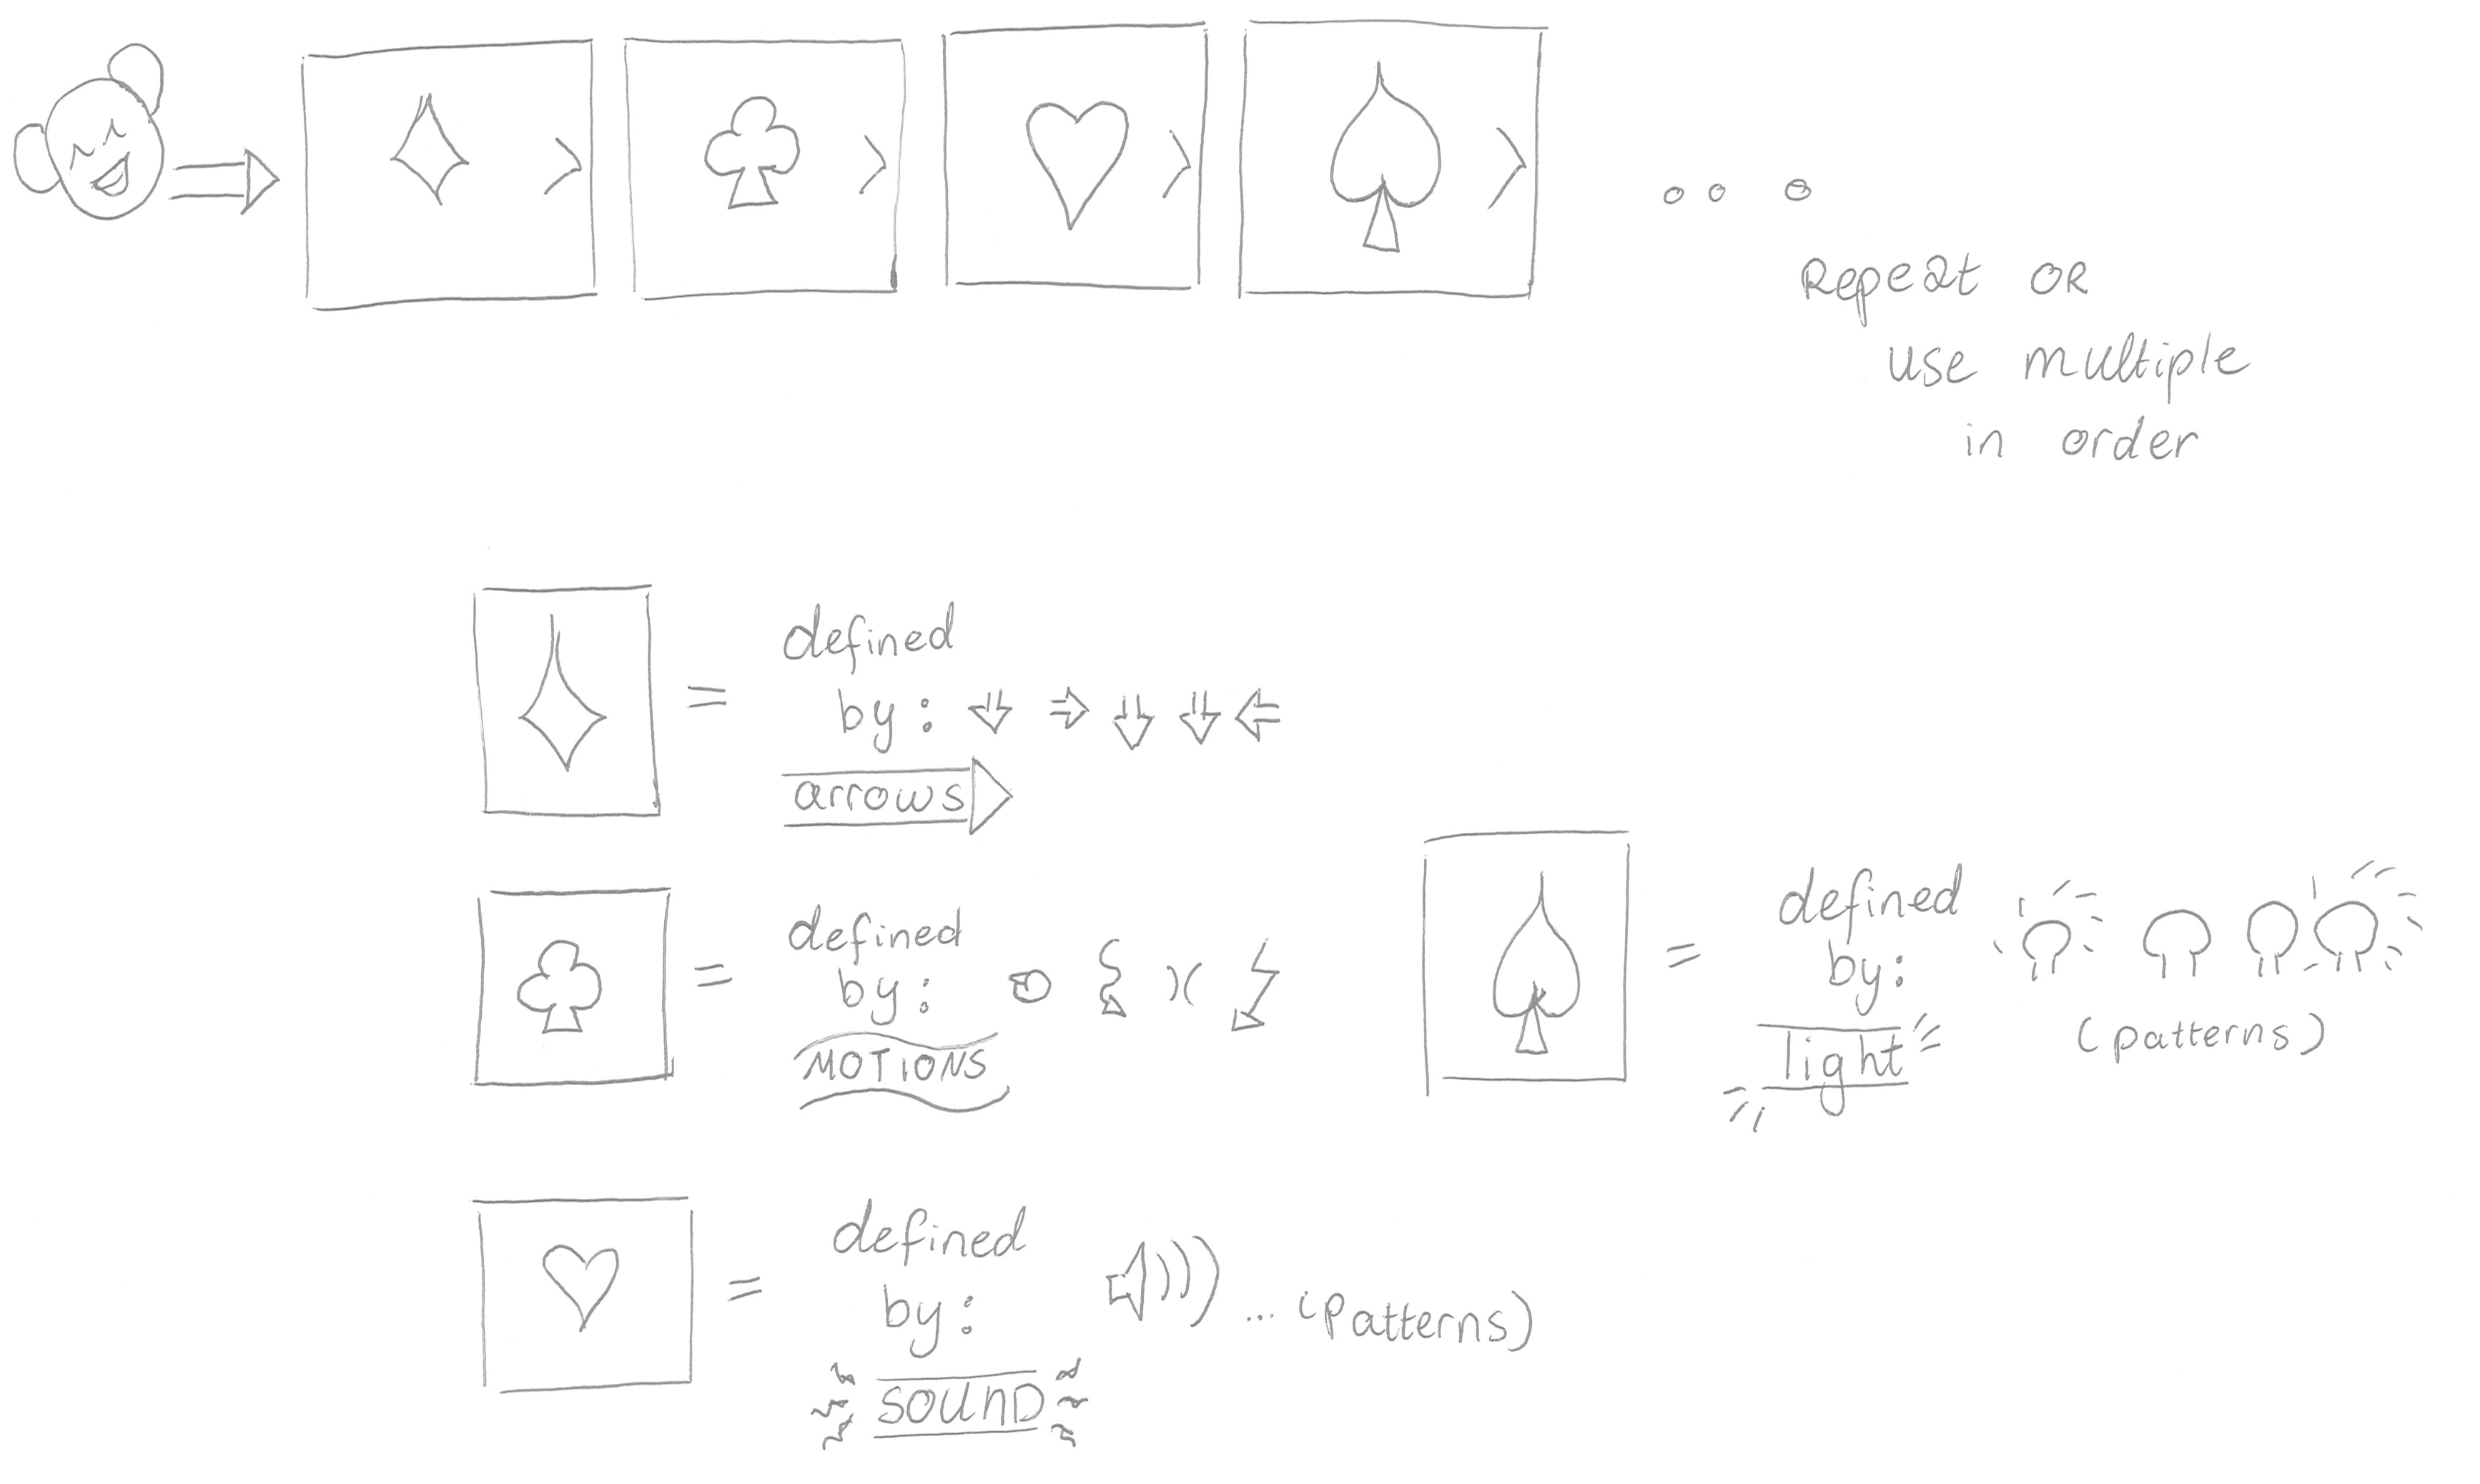 Repeat OR
use multiple
in order
defined
by:
arrows
defined
by:
MOTIONS
defined
by:
light
(patterns)
defined
by:
... (patterns)
SOUND